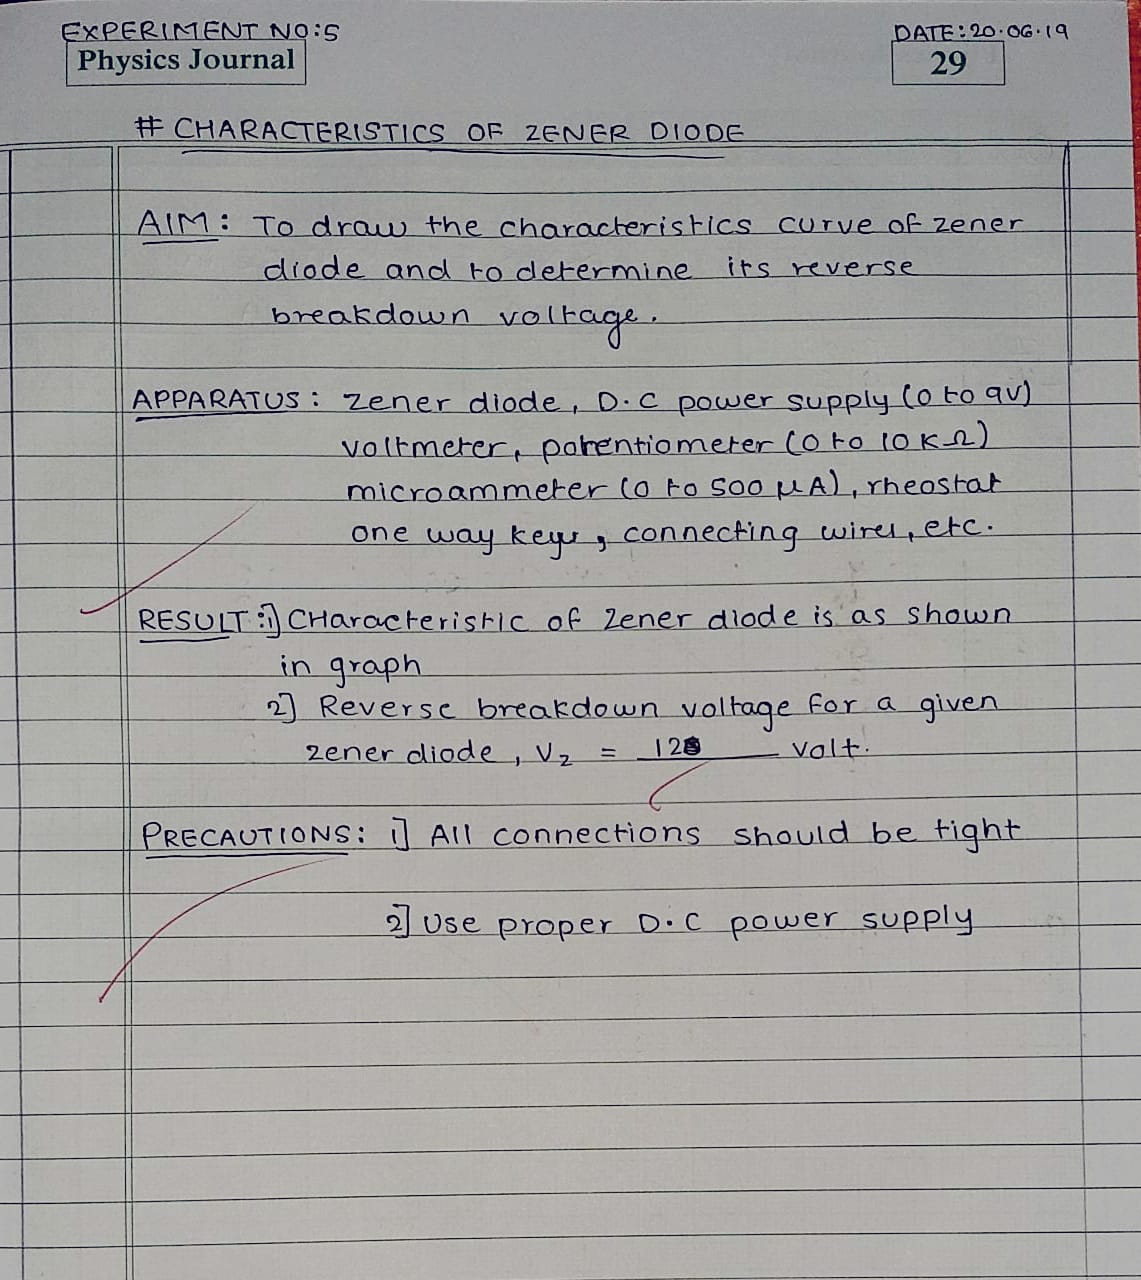 EXPERIMENT NO:5
DATE:20.06.19
Physics Journal
29
# CHARACTERISTICS OF ZENER DIODE
AIM: To draw the characteristics curve of zener
diode and to determine its reverse
breakdown voltage.
APPARATUS: zener diode, D.C power supply (0 to 9V)
voltmeter, potentiometer (0 to 10KΩ)
microammeter (0 to 500 μA), rheostat
one way keys, connecting wires, etc.
RESULT:1] CHaracteristic of Zener diode is as shown
in graph
2] Reverse breakdown voltage for a given
zener diode, Vz = volt.
PRECAUTIONS: 1] All connections should be tight
2] Use proper D.C power supply